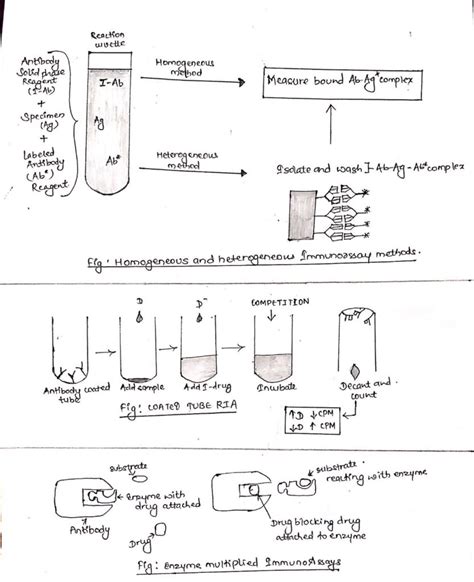 Reaction
cuvette
Antibody
Solid phase
Reagent
(I-Ab)
+
Specimen
(Ag)
+
Labeled
Antibody
(Ab*)
Reagent
I-Ab
Ag
Ab*
Homogeneous
method
Heterogeneous
method
Measure bound Ab-Ag* complex
Isolate and wash I-Ab-Ag-Ab* complex
Fig: Homogeneous and heterogeneous Immunoassay methods.
D
D⁻
COMPETITION
Antibody coated
tube
Add sample
Add I-drug
Incubate
Decant and
count
↑D ↓CPM
↓D ↑CPM
Fig: COATED TUBE RIA
substrate
Enzyme with
drug attached
Antibody
Drug
substrate
reacting with enzyme
Drug blocking drug
attached to enzyme
Fig: Enzyme multiplied ImmunoAssays